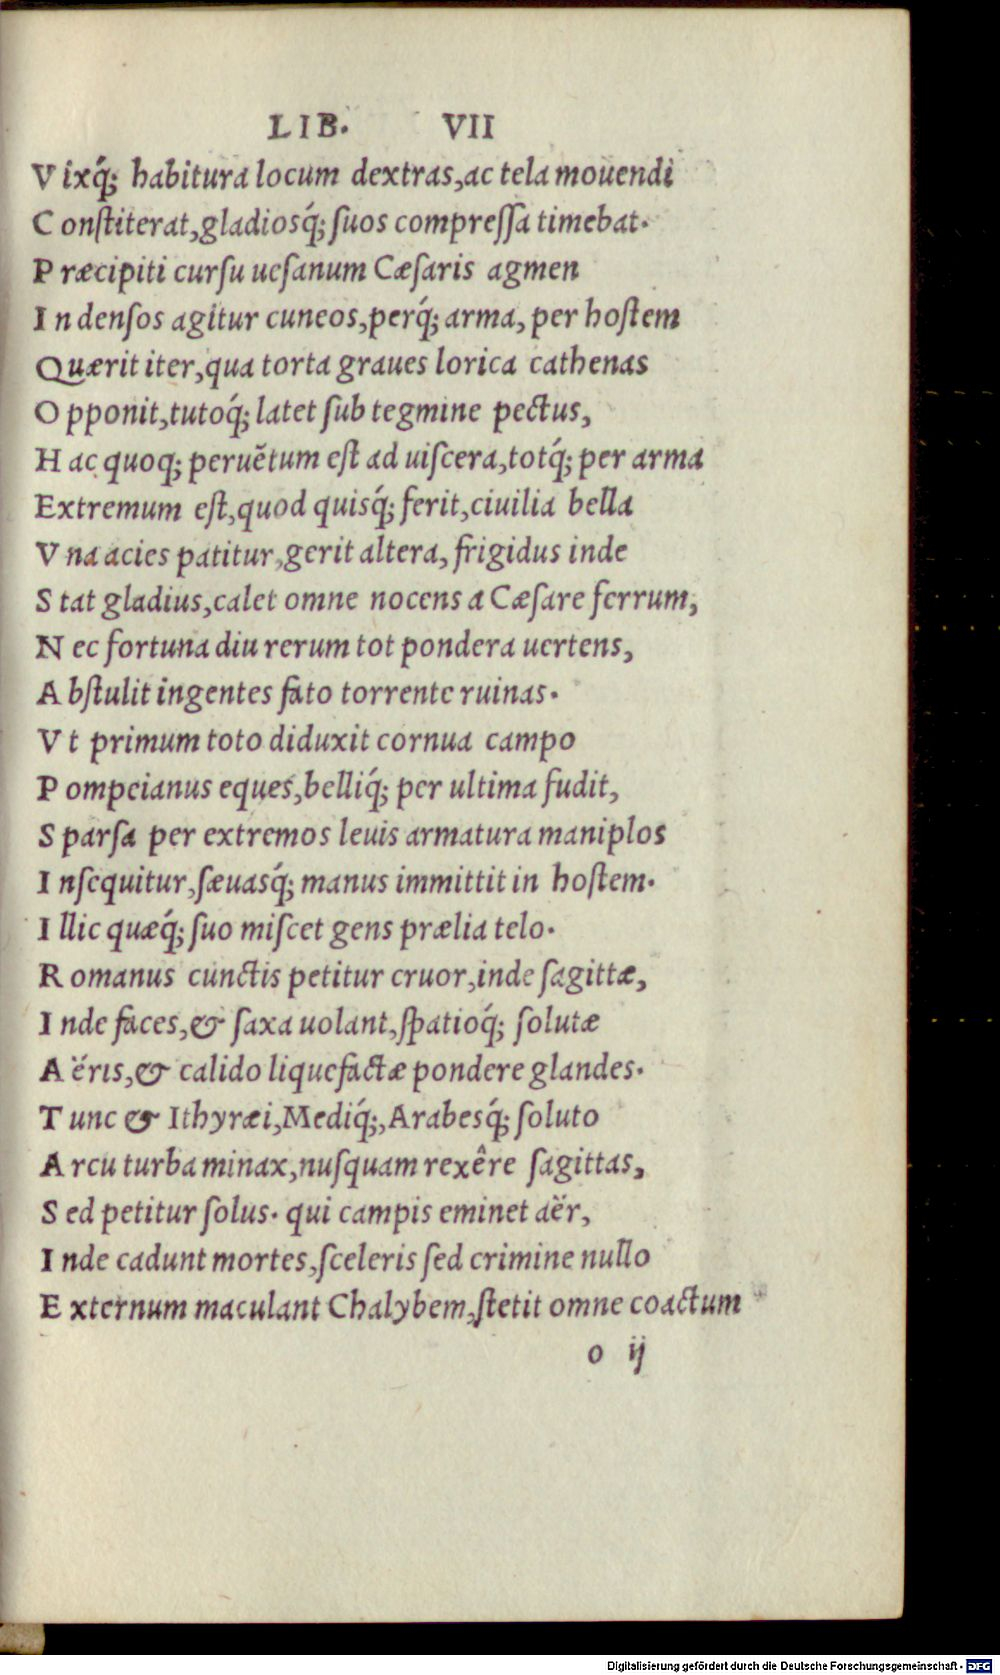 LIB. VII
V ixq́; habitura locum dextras,ac tela mouendi
C onſtiterat,gladiosq́; ſuos compreſſa timebat.
P ræcipiti curſu ueſanum Cæſaris agmen
I n denſos agitur cuneos,perq́; arma, per hoſtem
Quærit iter,qua torta graues lorica cathenas
O pponit,tutoq́; latet ſub tegmine pectus,
H ac quoq; peruẽtum eſt ad uiſcera,totq́; per arma
Extremum eſt,quod quisq́; ferit,ciuilia bella
V na acies patitur,gerit altera, frigidus inde
S tat gladius,calet omne nocens a Cæſare ferrum,
N ec fortuna diu rerum tot pondera uertens,
A bſtulit ingentes fato torrente ruinas.
V t primum toto diduxit cornua campo
P ompeianus eques,belliq́; per ultima fudit,
S parſa per extremos leuis armatura maniplos
I nſequitur,ſæuasq́; manus immittit in hoſtem.
I llic quæq́; ſuo miſcet gens prælia telo.
R omanus cunctis petitur cruor,inde ſagittæ,
I nde faces,& ſaxa uolant,ſpatioq́; ſolutæ
A ëris,& calido liquefactæ pondere glandes.
T unc & Ithyræi,Mediq́;,Arabesq́; ſoluto
A rcu turba minax,nuſquam rexêre ſagittas,
S ed petitur ſolus. qui campis eminet aër,
I nde cadunt mortes,ſceleris ſed crimine nullo
E xternum maculant Chalybem,ſtetit omne coactum
o ij
Digitalisierung gefördert durch die Deutsche Forschungsgemeinschaft - DFG